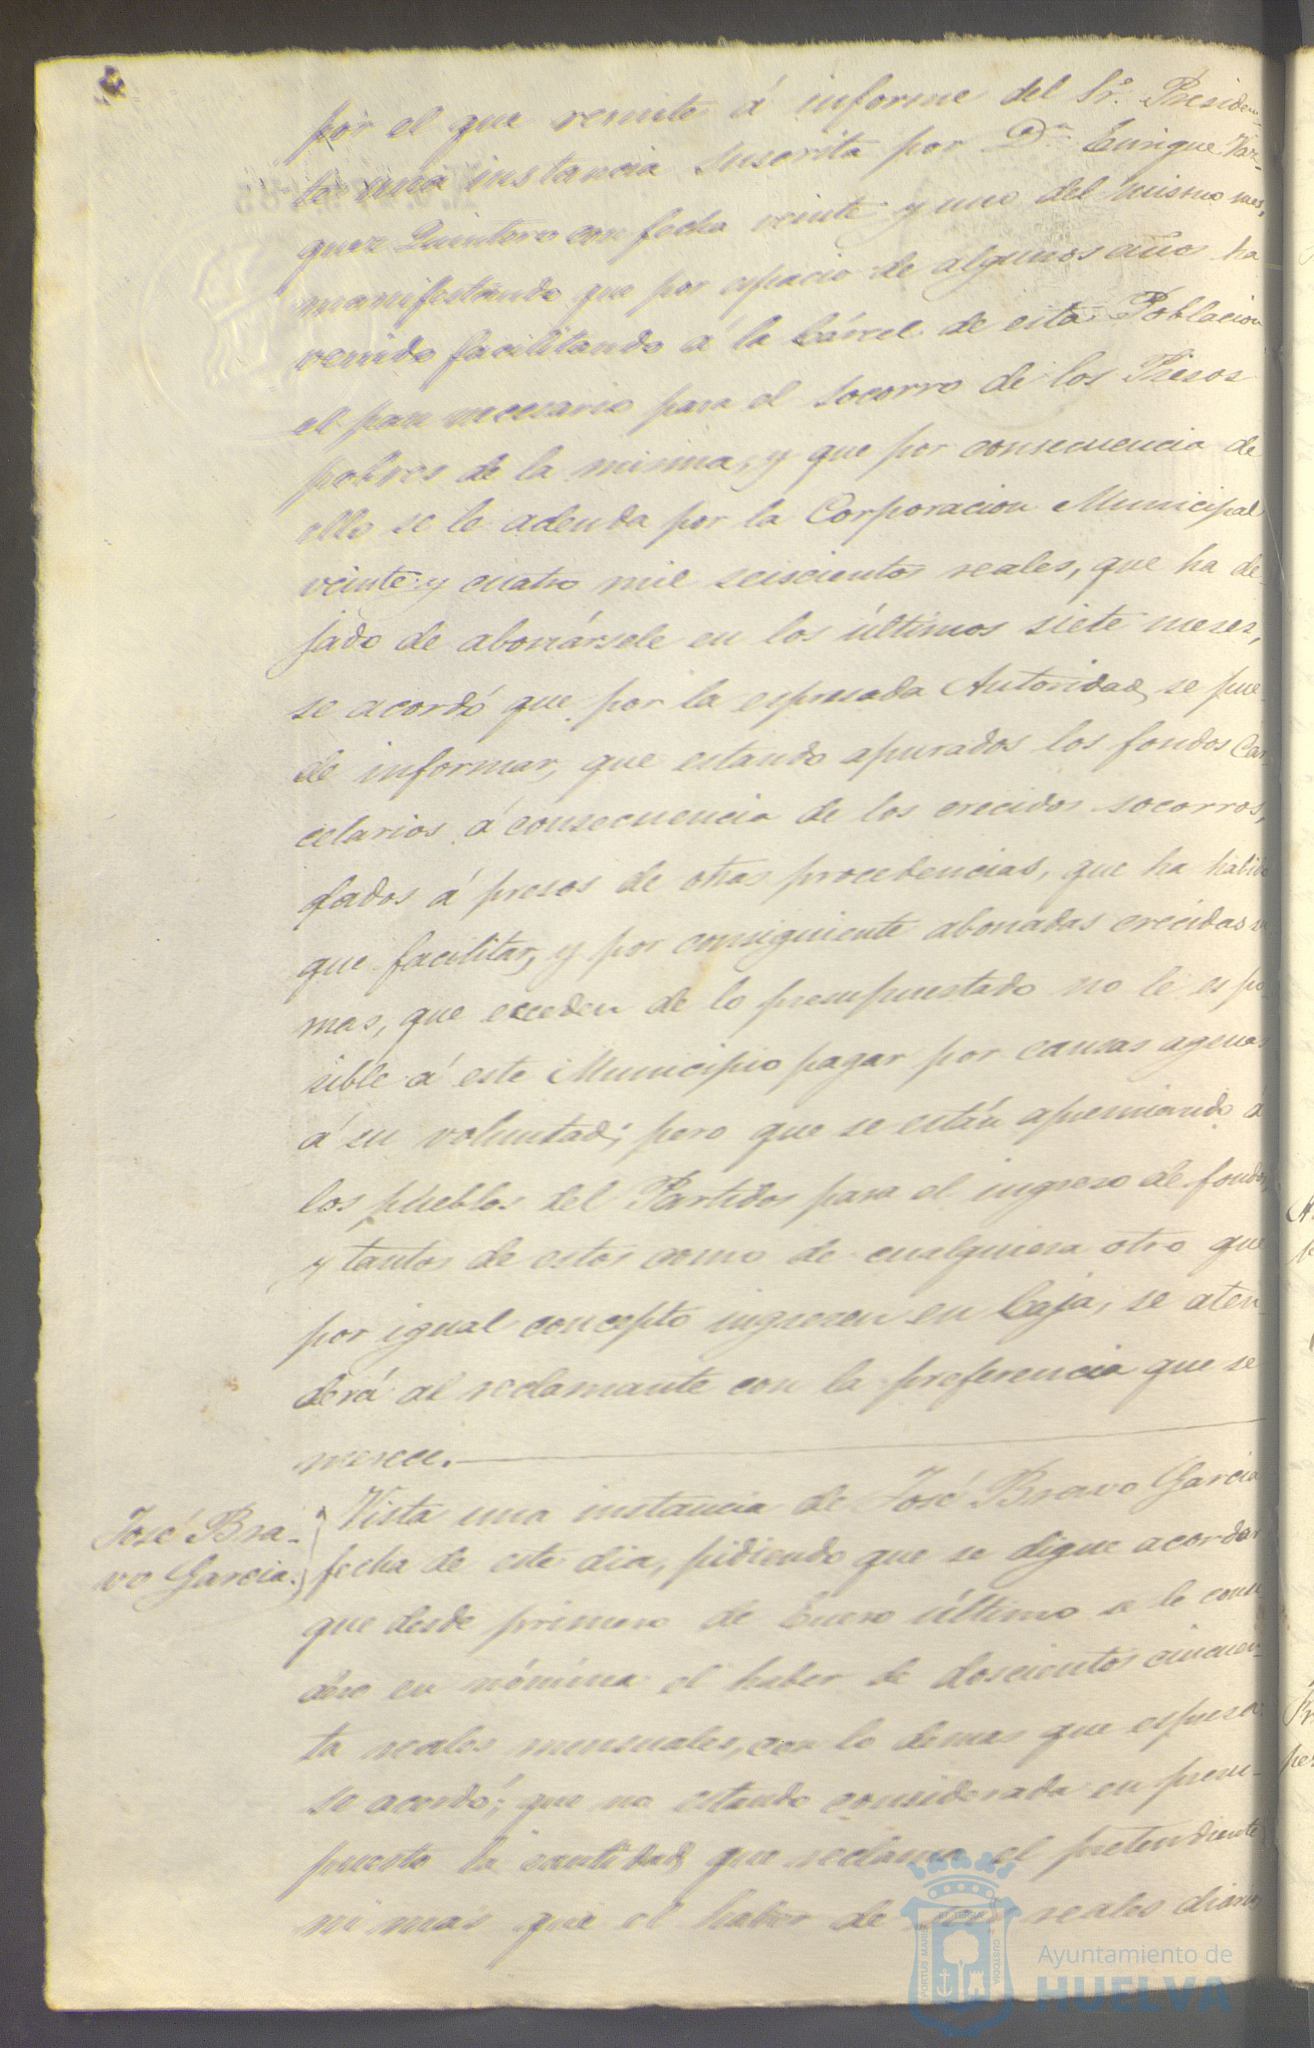 por el que remite á informe del Sr. Presiden-
te una instancia suscrita por Dn. Enrique Vaz-
quez Quintero con fecha veinte y uno del mismo mes,
manifestando que por espacio de algunos años ha
venido facilitando á la Cárcel de esta Poblacion
el pan necesario para el socorro de los Presos
pobres de la misma, y que por consecuencia de
ello se le adeuda por la Corporacion Municipal
veinte y cuatro mil seiscientos reales, que ha de-
jado de abonársele en los últimos siete meses,
se acordó que por la espresada Autoridad se pue-
de informar, que estando apurados los fondos Car-
celarios á consecuencia de los crecidos socorros,
dados á presos de otras procedencias, que ha habido
que facilitar, y por consiguiente abonadas crecidas su
mas, que esceden de lo presupuestado no le es po-
sible á este Municipio pagar por causas agenas
á su voluntad; pero que se están apremiando á
los pueblos del Partido para el ingreso de fondos,
y tantos de estos como de cualquiera otro que
por igual concepto ingresen en Caja, se aten-
derá al reclamante con la preferencia que se
merece.
José Bra-
vo Garcia.
Vista una instancia de José Bravo Garcia
fecha de este dia, pidiendo que se digne acordar
que desde primero de Enero último se le
en nómina el haber de doscientos cincuen-
ta reales mensuales, con lo demas que espresa:
se acordó; que no estando considerada en presu-
puesto la cantidad que reclama el pretendiente
ni mas que el haber de reales diarios
Ayuntamiento de
HUELVA
PORTUS MARIS
ET TERRÆ
CUSTODIA